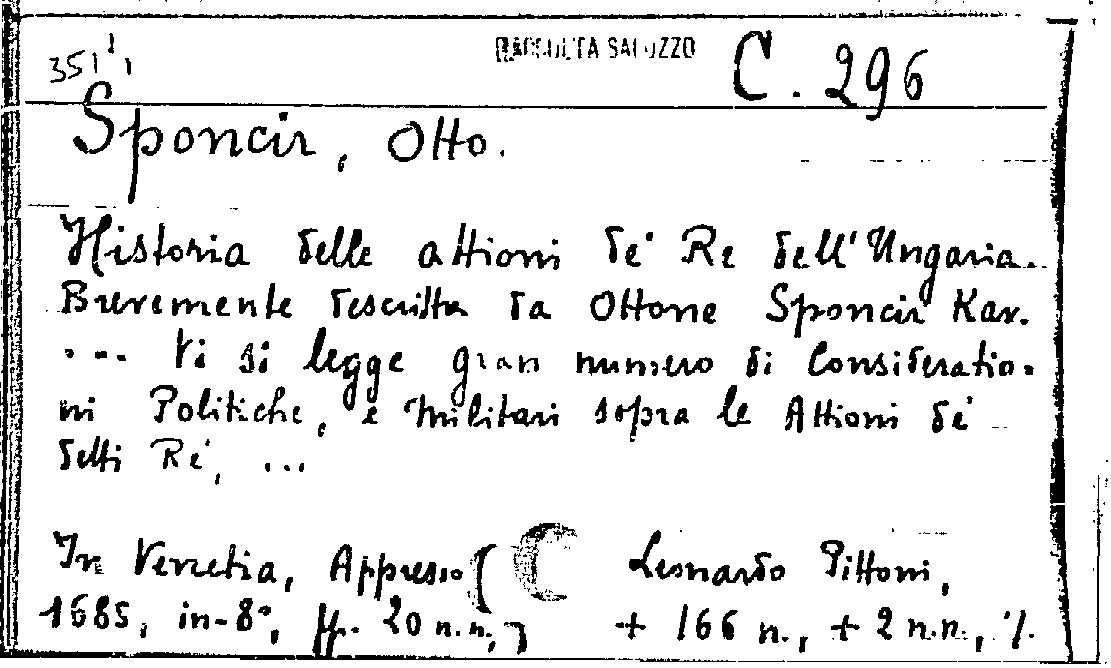 351
RACCOLTA SALUZZO
C. 296
Sponcir, Otto.
Historia delle attioni de' Re dell'Ungaria.
Brevemente descritta da Ottone Sponcir Kav.
... Vi si legge gran numero di Consideratio-
ni Politiche, e Militari sopra le Attioni de'
detti Re', ...
In Venetia, Appresso Leonardo Pittoni,
1685, in-8°, ff. 20 n.n., + 166 n., + 2 n.n.,